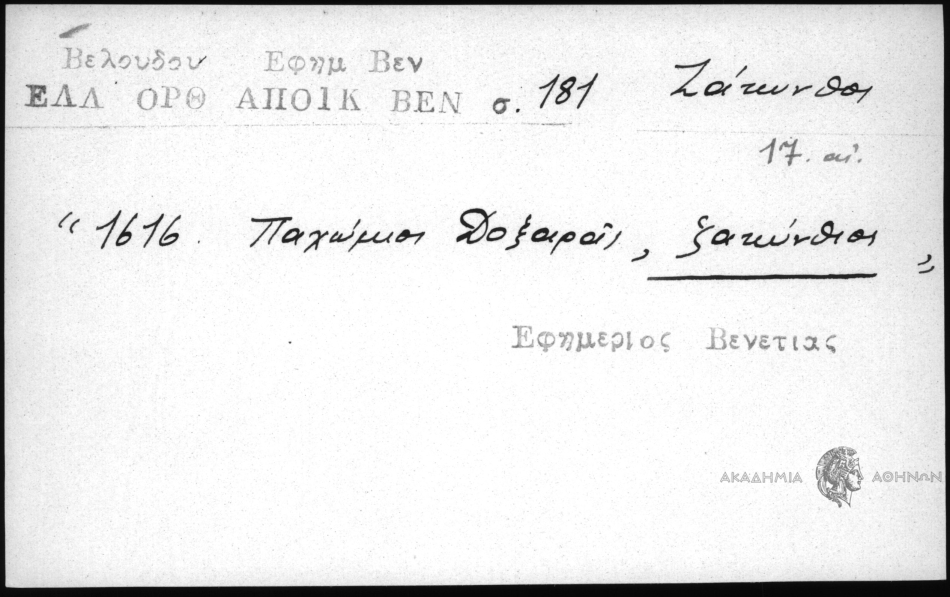 Βελουδου Εφημ Βεν
ΕΛΛ ΟΡΘ ΑΠΟΙΚ ΒΕΝ σ. 181 Ζάκυνθος
17. αἰ.
“ 1616. Παχώμιος Δοξαρᾶς, ζακύνθιος „
Εφημεριος Βενετιας
ΑΚΑΔΗΜΙΑ ΑΘΗΝΩΝ